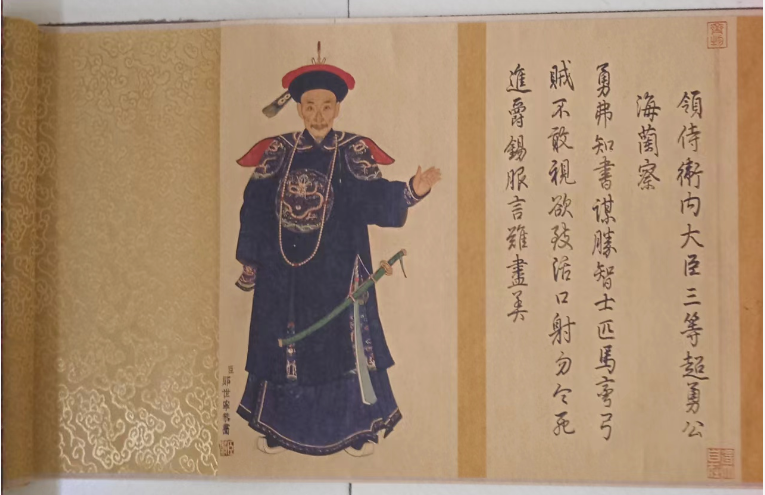 領侍衛內大臣三等超勇公
海蘭察
勇弗知書謀勝智士匹馬彎弓
賊不敢視欲致活口射勿令死
進爵錫服言難盡美
郎世寧恭畫